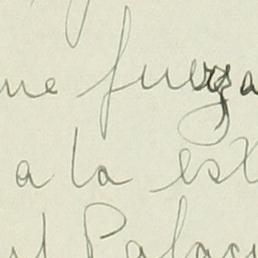 me fuerza
a la ex
el Palac